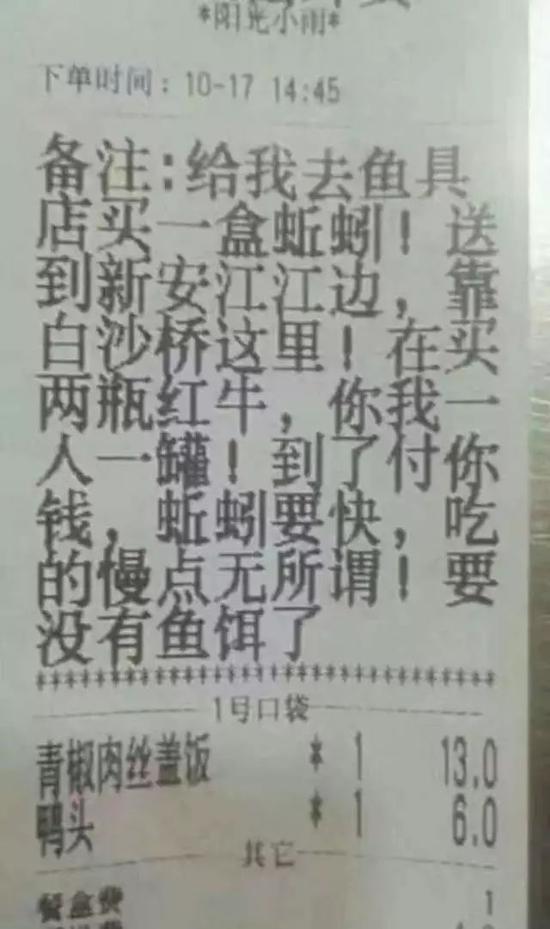 *阳光小雨*
下单时间：10-17 14:45
备注:给我去鱼具
店买一盒蚯蚓！送
到新安江江边，靠
白沙桥这里！在买
两瓶红牛，你我一
人一罐！到了付你
钱，蚯蚓要快，吃
的慢点无所谓！要
没有鱼饵了
********************************
1号口袋
青椒肉丝盖饭 * 1 13.0
鸭头 * 1 6.0
其它
餐盒费 1